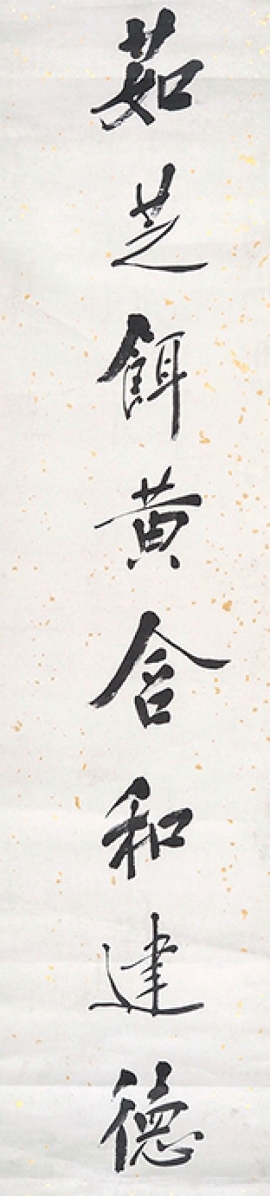 茹芝餌黄含和建德